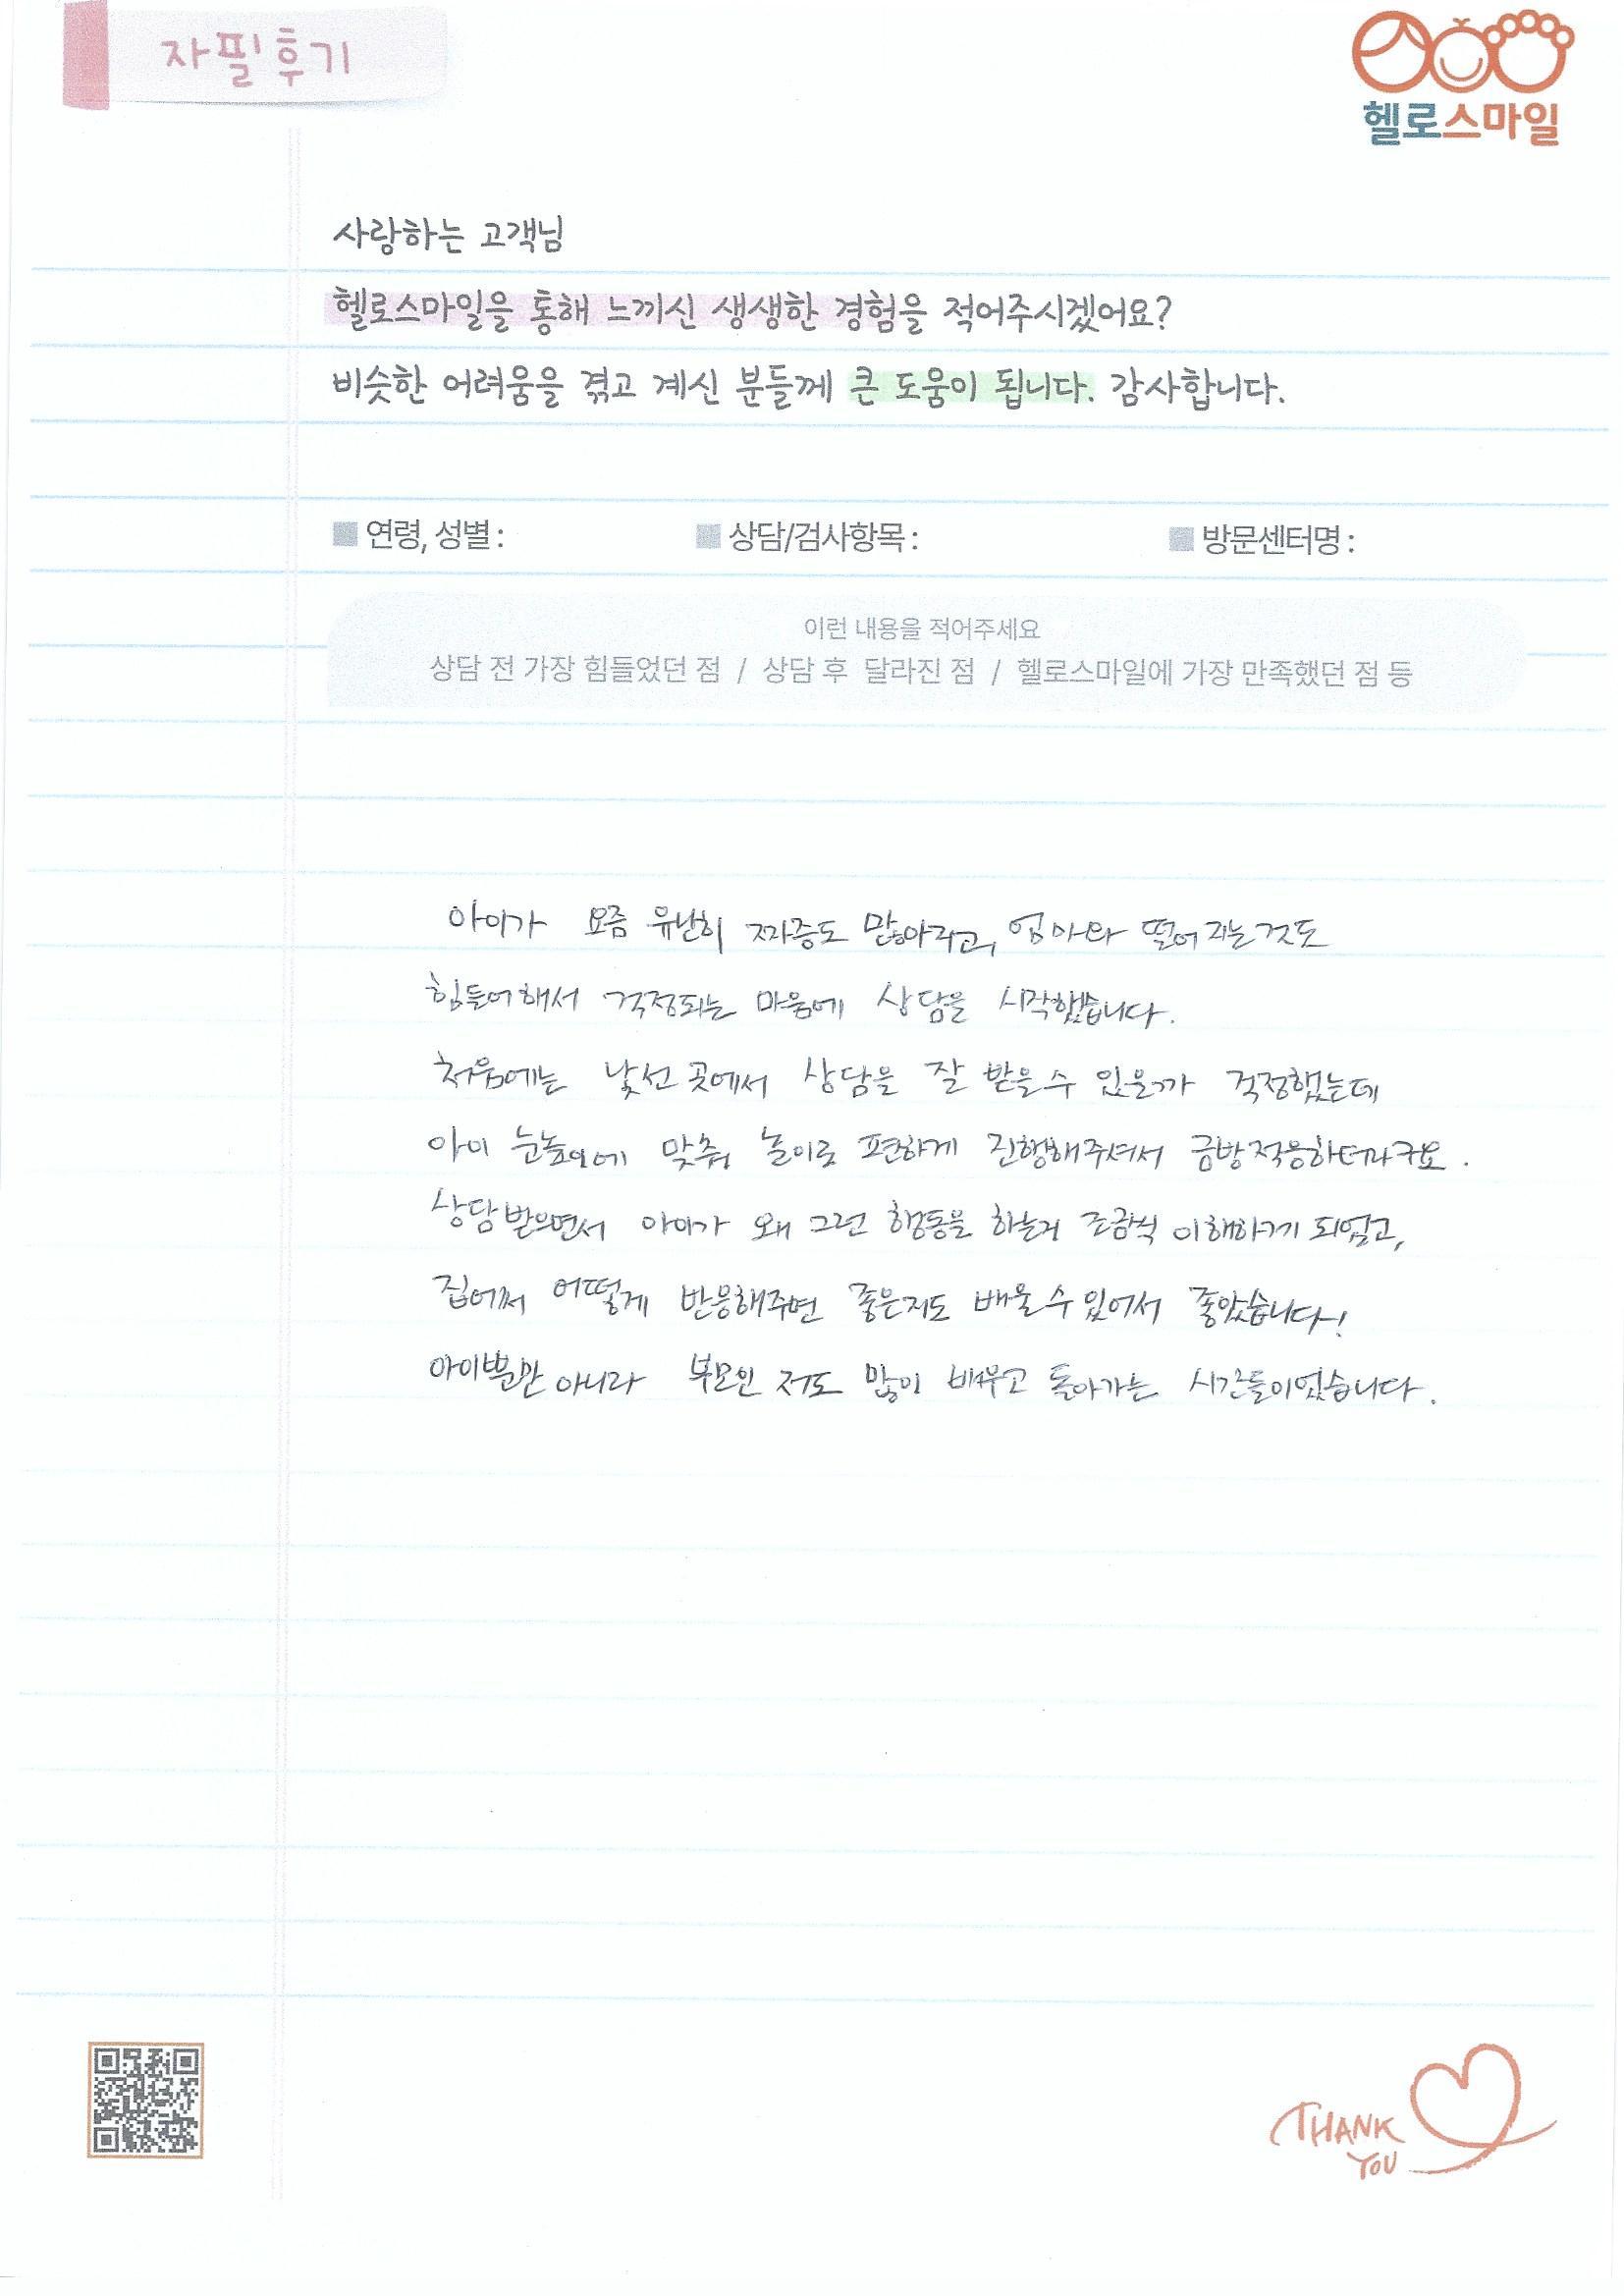 자필후기
헬로스마일
사랑하는 고객님
헬로스마일을 통해 느끼신 생생한 경험을 적어주시겠어요?
비슷한 어려움을 겪고 계신 분들께 큰 도움이 됩니다. 감사합니다.
연령, 성별 : 상담/검사항목 : 방문센터명 :
이런 내용을 적어주세요
상담 전 가장 힘들었던 점 / 상담 후 달라진 점 / 헬로스마일에 가장 만족했던 점 등
아이가 요즘 유난히 짜증도 많아지고, 엄마와 떨어지는것도
힘들어해서 걱정되는 마음에 상담을 시작했습니다.
처음에는 낯선 곳에서 상담을 잘 받을수 있을까 걱정했는데
아이 눈높이에 맞춰 놀이로 편하게 진행해주셔서 금방적응하더라구요.
상담받으면서 아이가 왜 그런 행동을 하는지 조금씩 이해하게 되었고,
집에서 어떻게 반응해주면 좋은지도 배울수있어서 좋았습니다!
아이뿐만 아니라 부모인 저도 많이 배우고 돌아가는 시간들이었습니다.
THANK
YOU